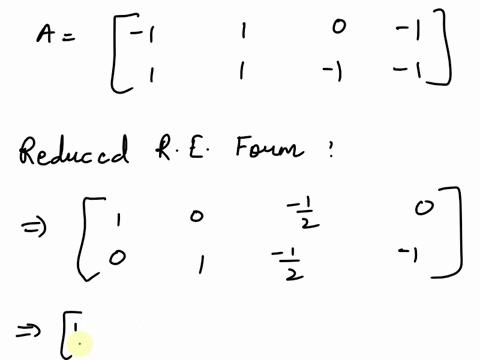 A = [ -1 1 0 -1
1 1 -1 -1 ]
Reduced R.E. Foum :
⇒ [ 1 0 -1/2 0
0 1 -1/2 -1 ]
⇒ [ 1